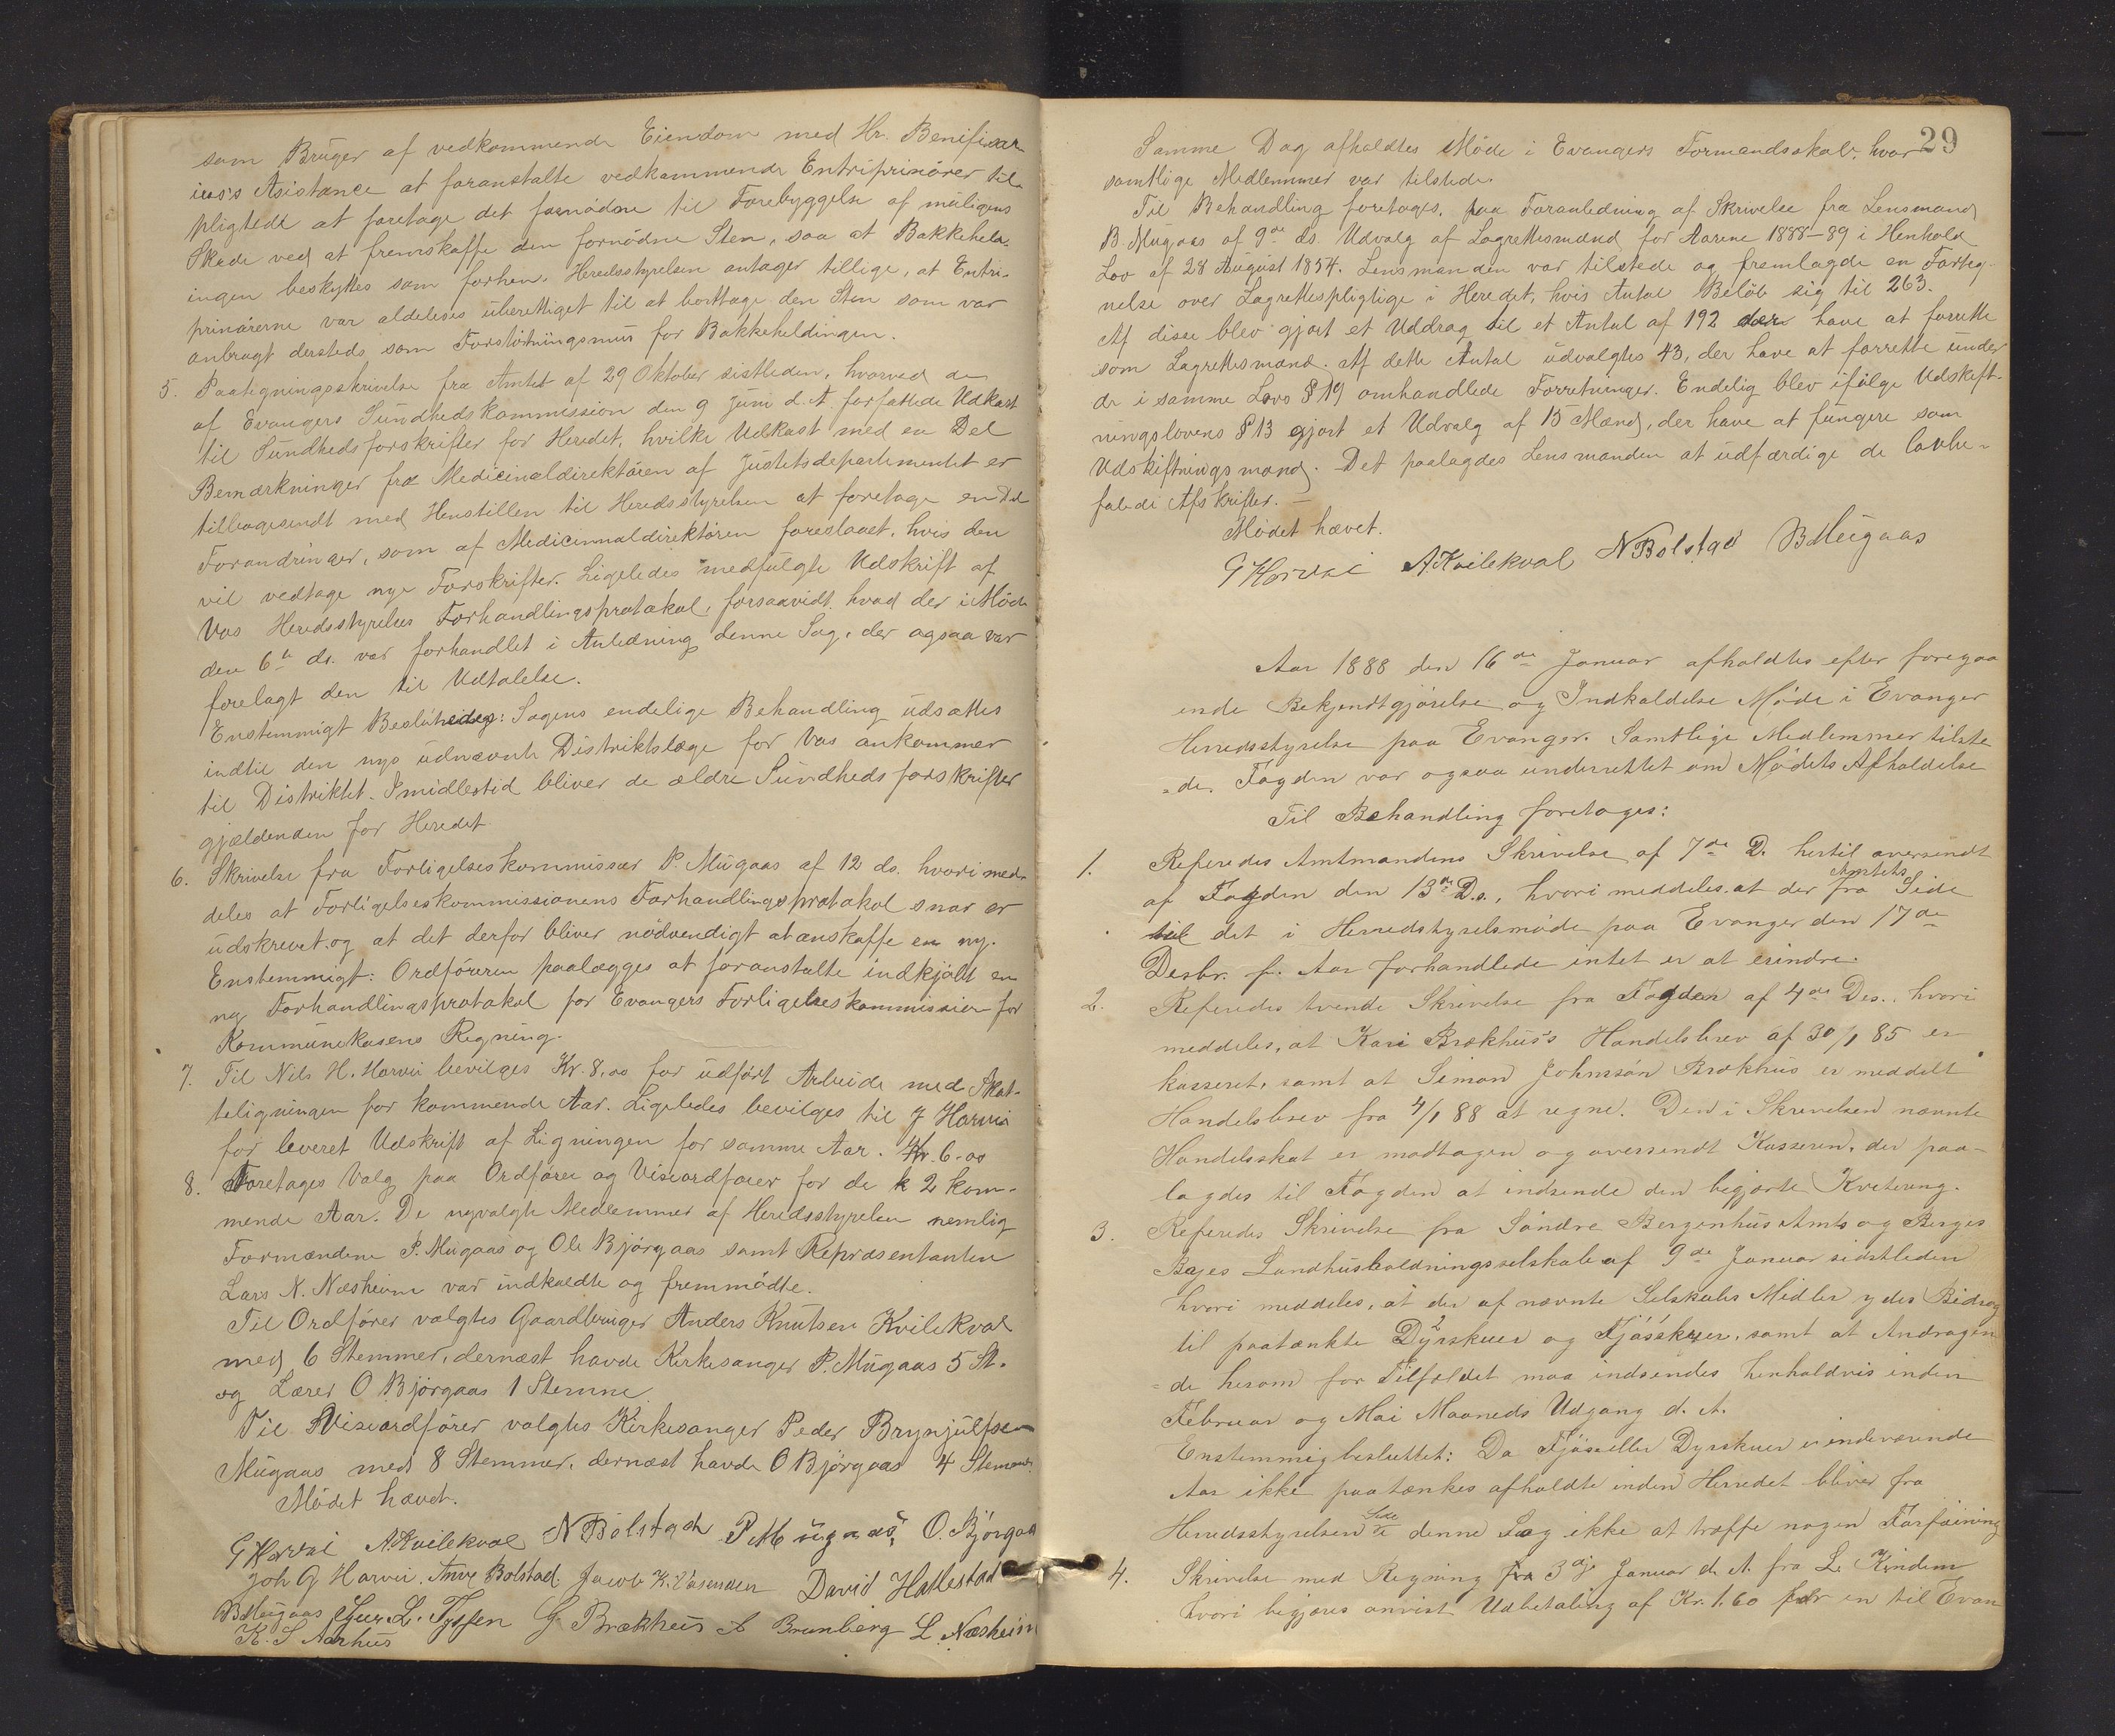 som Bruger af vedkommende Eiendom med Hr. Benificear
ius's Asistance at foranstalte vedkommende Entriprinörer til
pligtede at foretage det fornödne til Forebyggelse af muligens
Skade ved at fremskaffe den fornödne Sten, saa at Bakkeheld
ingen beskyttes som forhen. Heredsstyrelsen antager tillige, at Entri-
prinörerne var aldeleses uberettiget til at borttage den Sten som var
anbragt dersteds som Forstötningsmur for Bakkeheldingen.
5. Paategningsskrivelse fra Amtet af 29 Oktober sistleden, hvorved de
af Evangers Sundhedskommission den 9 Juni d. A. forfattede Udkast
til Sundhedsforskrifter for Heredet, hvilke Udkast med en Del
Bemærkninger fra Medicinaldirektören af Justetsdepartementet er
tilbagesendt med Henstillen til Heredsstyrelsen at foretage en Del
Forandringer, som af Medicinnaldirektören foreslaaet, hvis den
vil vedtage nye Forskrifter. Ligeledes medfulgte Udskrift af
Vos Heredsstyrelses Forhandlingsprotokol, forsaavidt hvad der i Möde
den 6te ds. var forhandlet i Anledning denne Sag, der ogsaa var
forelagt den til Udtalelse.
Enstemmigt Besluttedes: Sagens endelige Behandling udsættes
indtil den nys udnævnte Distriktslæge for Vos ankommer
til Distriktet. Imidlertid bliver de ældre Sundhedsforskrifter
gjældenden for Heredet
6. Skrivelse fra Forligelseskommissær P Mügaas af 12 ds. hvori med-
deles at Forligelseskommissionens Forhandlingsprotokol snar er
udskrevet og at det derfor bliver nödvendigt at anskaffe en ny.
Enstemmigt: Ordföreren paalægges at foranstalte indkjöbt en
ny Forhandlingsprotokol for Evangers Forligelseskommission for
Kommunekasens Regning.
7. Til Nils H. Horvei bevilges Kr. 8,00 for udfört Arbeide med Skat-
teligningen for kommende Aar. Ligeledes bevilges til J Horvei
for leveret Udskrift af Ligningen for somme Aar. Kr. 6.00
8. Foretages Valg paa Ordförer og Viseordförer for de 2 kom-
mende Aar. De nyvalgte Medlemmer af Heredsstyrelsen nemlig
Formændene P. Mügaas og Ole Björgaas samt Repræsentanten
Lars N. Næsheim var indkaldte og fremmödte.
Til Ordförer valgtes Gaardbruger Anders Knutsen Kvilekval
med 6 Stemmer, dernæst havde Kirkesanger P. Mügaas 5 St.
og Lærer O Björgaas 1 Stemme
Til Viseordförer valgtes Kirkesanger Peder Brynjulfsen
Mügaas med 8 Stemmer, dernæst havde O Björgaas 4 Stemmer.
Mödet hævet.
G Horvei A Kvilekval N Bolstad P Mügaas O. Björgaas
Joh G Horvei. Anve Bolstad Jacob K. Vasenden David Hallestad
B Mügaas Sjur L. Fyssen G Brækhus A Brunberg L. Næsheim
K. S Aarhus
29
Samme Dag afholdtes Möde i Evangers Formandsskab, hvor
samtlige Medlemmer var tilstede.
Til Behandling foretoges, paa Foranledning af Skrivelse fra Lensmand
B. Mügaas af 9de ds. Udvalg af Lagrettesmænd for Aarene 1888-89 i Henhold
Lov af 28 August 1854. Lensmanden var tilstede og fremlagde en Forteg
nelse over Lagrettespligtige i Heredet, hvis Antal Belöb sig til 263.
Af disse blev gjort et Uddrag til et Antal af 192 der have at forrette
som Lagrettesmænd. Af dette Antal udvalgtes 43, der have at forrette under
de i samme Lovs § 19 omhandlede Forretninger. Endelig blev ifölge Udskift-
ningslovens § 13 gjort et Udvalg af 15 Mænd, der have at fungere som
Udskiftningsmænd. Det paalagdes Lensmanden at udfærdige de lovbe-
falede Afskrifter. -
Mödet hævet.
G Horvei A Kvilekval N Bolstad B Mügaas
Aar 1888 den 16de Januar afholdtes efter foregaa
ende Bekjendtgjörelse og Indkaldelse Möde i Evanger
Herredsstyrelse paa Evanger. Samtlige Medlemmer tilste
=de. Fogden var ogsaa underrettet om Mödets Afholdelse
Til Behandling foretoges:
1. Referedes Amtmandens Skrivelse af 7de D. hertil oversendt
af Fogden den 13de D.s., hvori meddeles at der fra Amtets Side
til det i Herredstyrelsmöde paa Evanger den 17de
Desbr. f. Aar forhandlede intet er at erindre.
2. Referedes tvende Skrivelse fra Fogden af 4de Ds., hvori
meddeles, at Kari Brækhus's Handelsbrev af 30/1 85 er
kasseret, samt at Simon Johnssön Brækhus er meddelt
Handelsbrev fra 4/1 88 at regne. Den i Skrivelsen nævnte
Handelsskat er modtagen og oversendt Kasseren, der paa-
lagdes til Fogden at indsende den begjærte Kvitering.
3. Referedes Skrivelse fra Söndre Bergenhus Amts og Berges
Byes Landhusholdningsselskab af 9de Januar sidstleden
hvori meddeles, at der af nævnte Selskabs Midler ydes Bidrag
til paatænkte Dyrskuer og Fjösskuer, samt at Andragen
=de herom for Tilfældet maa indsendes henholdvis inden
Februar og Mai Maaneds Udgang d. A.
Enstemmig besluttet: Da Fjös eller Dyrskuer i indeværende
Aar ikke paatænkes afholdte inden Herredet bliver fra
Herredsstyrelsen Side i denne Sag ikke at træffe nogen Forföining
4. Skrivelse med Regning fra 3dje Januar d. A. fra L. Kindem
hvori begjæres anvist Udbetaling af Kr. 1.60 for en til Evan